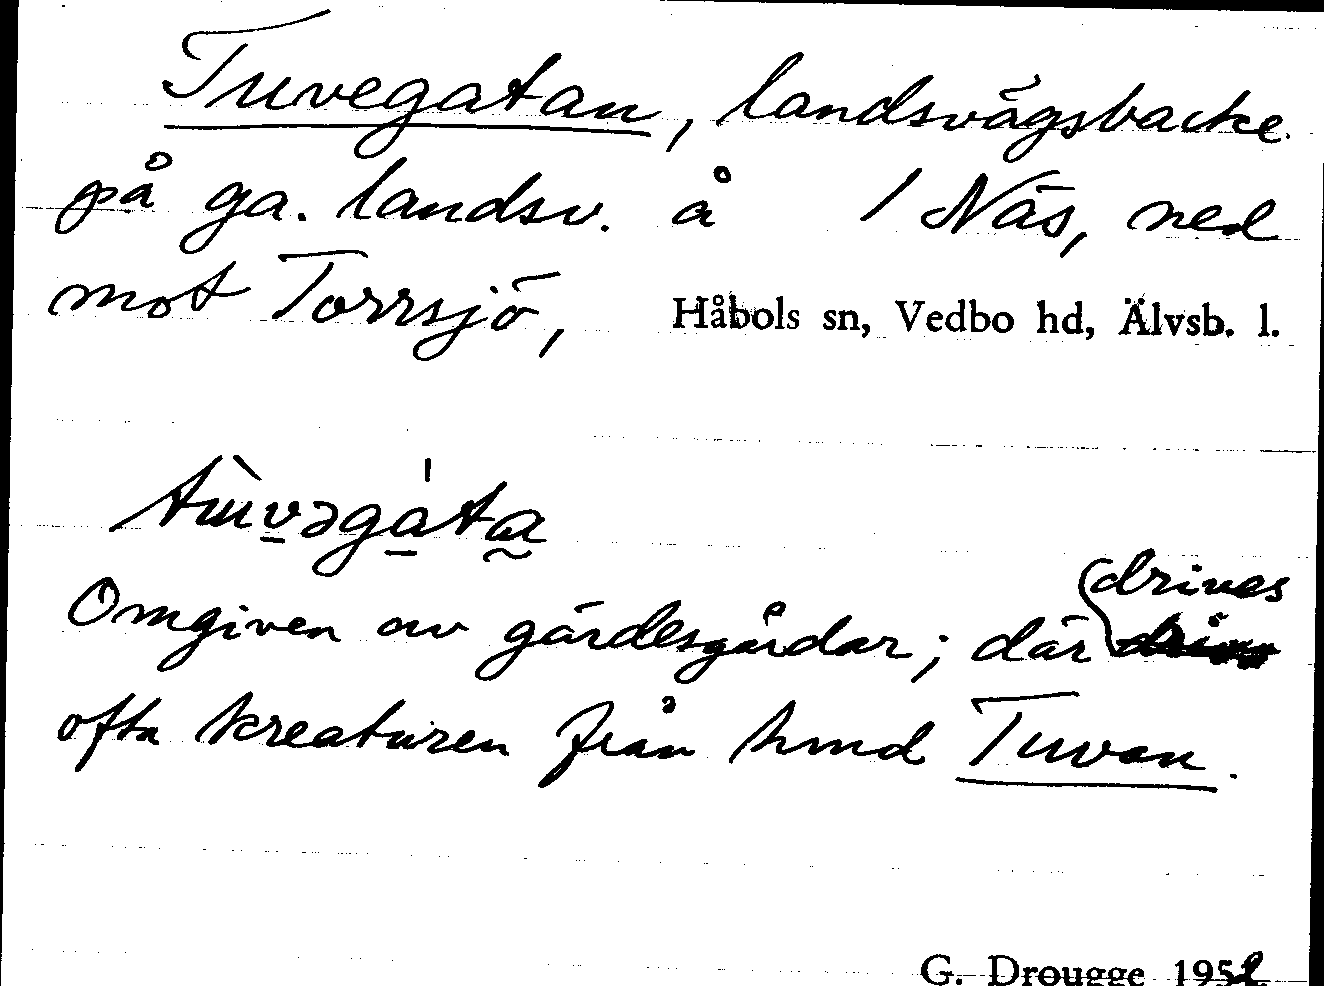 Tuvegatan, landsvägsbacke
på ga. landsv. å 1 Näs, ned
mot Torrsjö, Håbols sn, Vedbo hd, Älvsb. l.
drives
Omgiven av gärdesgårdar; där
ofta kreaturen från hmd Tuvan.
G. Drougge 1952